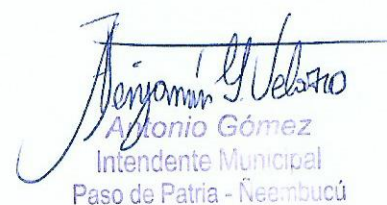 Benjamín G. Velazco
Antonio Gómez
Intendente Municipal
Paso de Patria - Ñeembucú